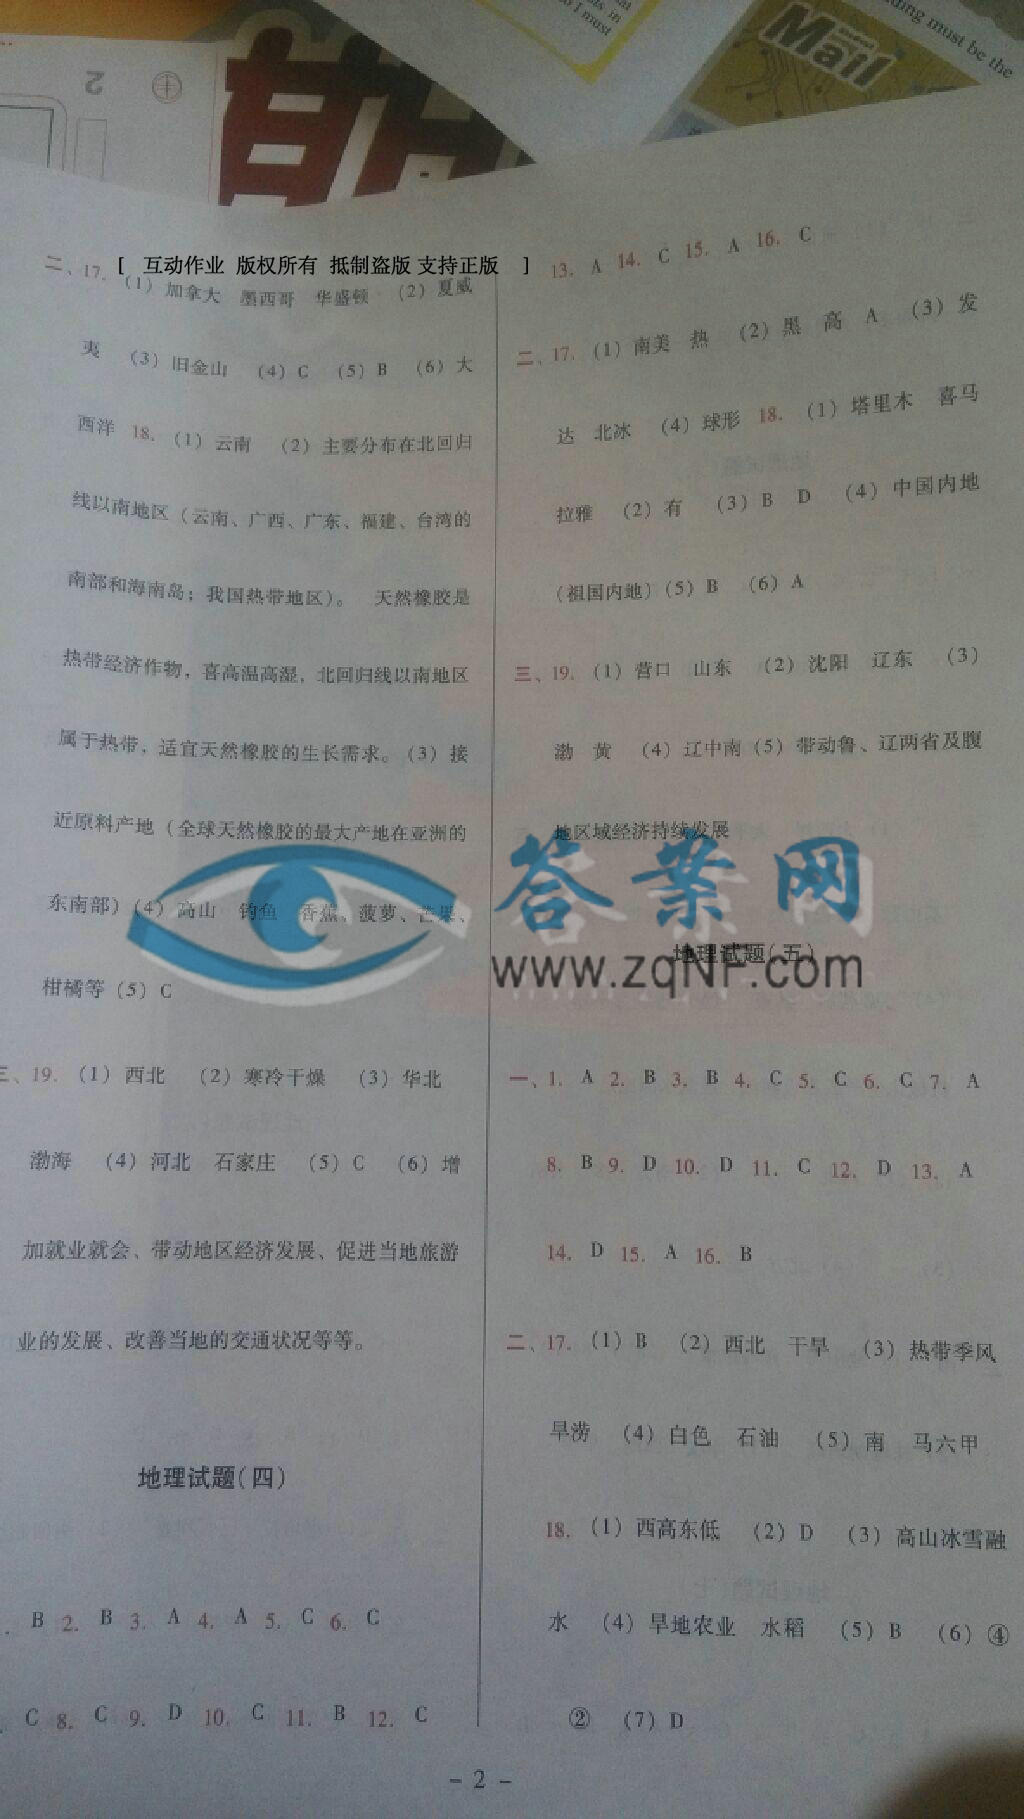 Mail
ding must be the
o I must
2
[ 互动作业 版权所有 抵制盗版 支持正版 ]
二、17. (1)加拿大 墨西哥 华盛顿 (2)夏威
夷 (3)旧金山 (4)C (5)B (6)大
西洋 18. (1)云南 (2)主要分布在北回归
线以南地区(云南、广西、广东、福建、台湾的
南部和海南岛；我国热带地区)。 天然橡胶是
热带经济作物，喜高温高湿，北回归线以南地区
属于热带，适宜天然橡胶的生长需求。(3)接
近原料产地(全球天然橡胶的最大产地在亚洲的
东南部)(4)高山 钓鱼 香蕉、菠萝、芒果、
柑橘等(5)C
三、19. (1)西北 (2)寒冷干燥 (3)华北
渤海 (4)河北 石家庄 (5)C (6)增
加就业就会、带动地区经济发展、促进当地旅游
业的发展、改善当地的交通状况等等。
地理试题(四)
. B 2. B 3. A 4. A 5. C 6. C
. C 8. C 9. D 10. C 11. B 12. C
13. A 14. C 15. A 16. C
二、17. (1)南美 热 (2)黑 高 A (3)发
达 北冰 (4)球形 18. (1)塔里木 喜马
拉雅 (2)有 (3)B D (4)中国内地
(祖国内地)(5)B (6)A
三、19. (1)营口 山东 (2)沈阳 辽东 (3)
渤 黄 (4)辽中南(5)带动鲁、辽两省及腹
地区域经济持续发展
答案网
www.zqNF.com
地理试题(五)
一、1. A 2. B 3. B 4. C 5. C 6. C 7. A
8. B 9. D 10. D 11. C 12. D 13. A
14. D 15. A 16. B
二、17. (1)B (2)西北 干旱 (3)热带季风
旱涝 (4)白色 石油 (5)南 马六甲
18. (1)西高东低 (2)D (3)高山冰雪融
水 (4)旱地农业 水稻 (5)B (6)④
② (7)D
- 2 -